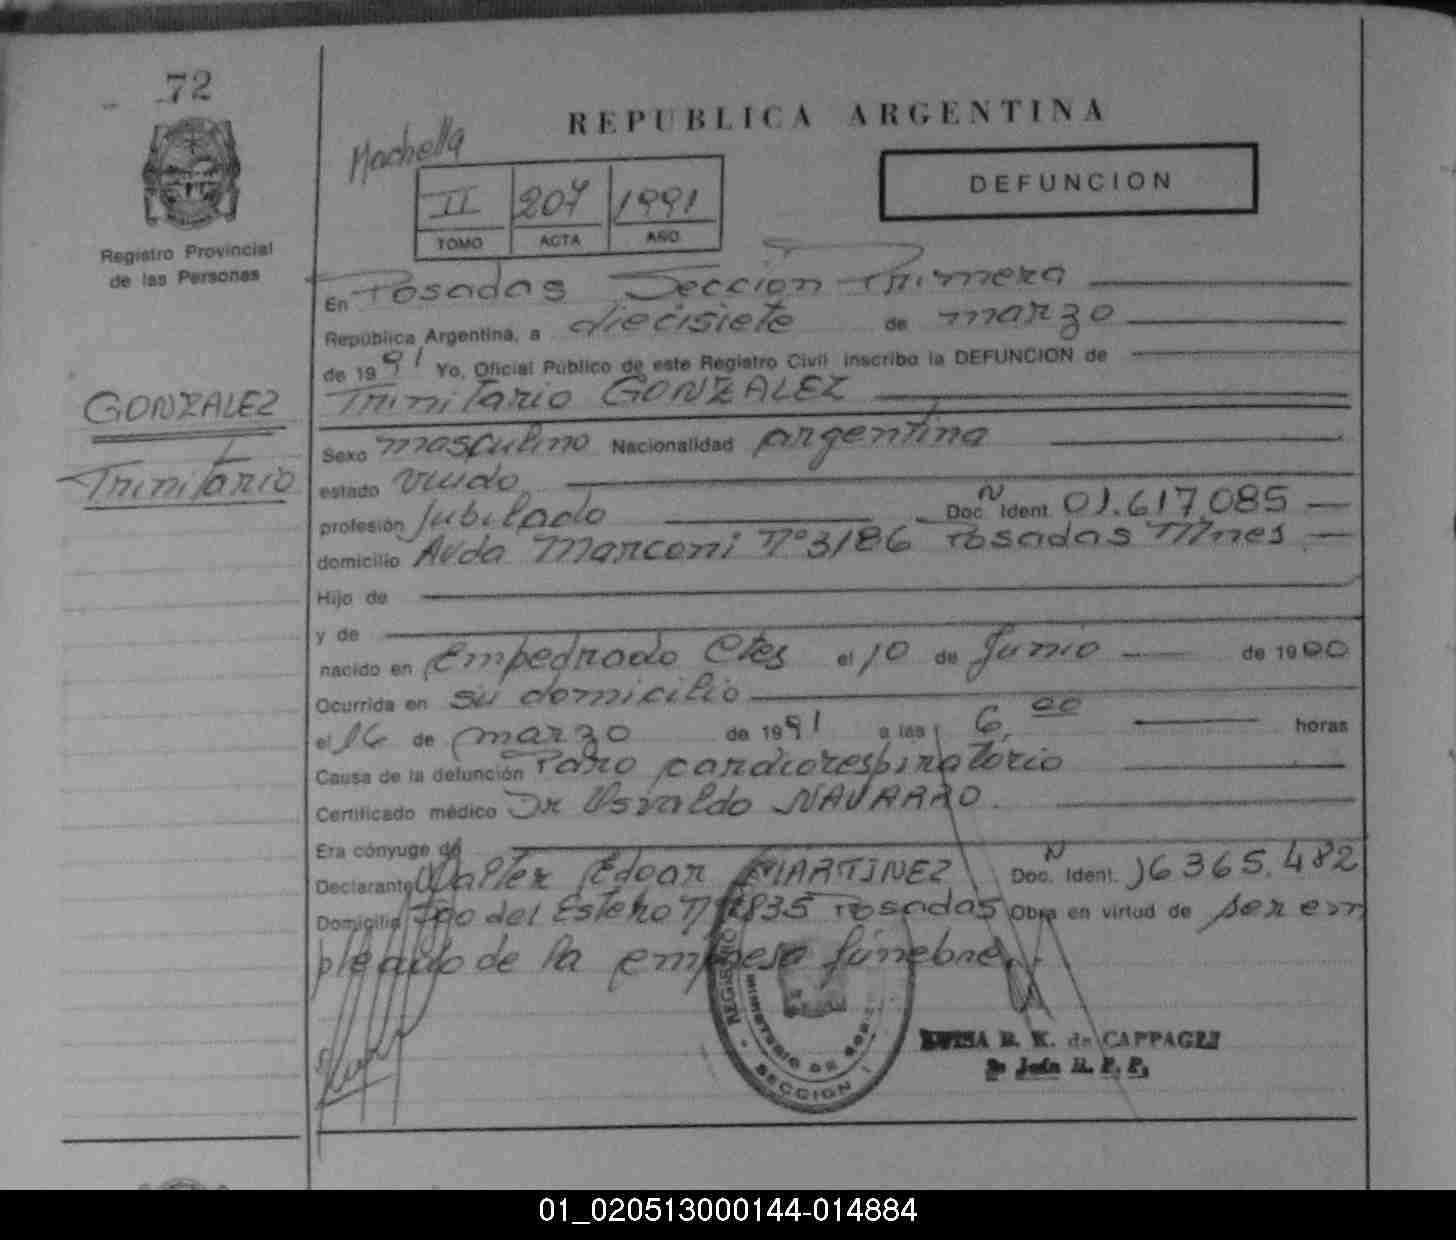 72
Registro Provincial
de las Personas
GONZALEZ
Trinitario
REPUBLICA ARGENTINA
DEFUNCION
II 207 1991
TOMO ACTA AÑO
En Posadas Sección Primera
República Argentina, a diecisiete de marzo
de 1991 Yo, Oficial Público de este Registro Civil inscribo la DEFUNCION de
Trinitario GONZALEZ
Sexo masculino Nacionalidad argentina
estado viudo
profesión Jubilado Doc. N Ident. 01.617.085
domicilio Avda Marconi Nº 3186 Posadas Mnes
Hijo de
y de
nacido en Empedrado Ctes el 10 de Junio de 1900
Ocurrida en su domicilio
el 16 de marzo de 1991 a las 6,00 horas
Causa de la defunción Paro cardiorespiratorio
Certificado médico Dr Osvaldo NAVARRO
Era cónyuge de
Declarante Walter Edgar MARTINEZ Doc. N Ident. 16365.482
Domicilio Sgo del Estero Nº 835 Posadas Obra en virtud de ser em
pleado de la empresa fúnebre
REGISTRO
MINISTERIO DE
SECCION 1
R. K. de CAPPAGLI
Jefa R. P. P.
01_020513000144-014884